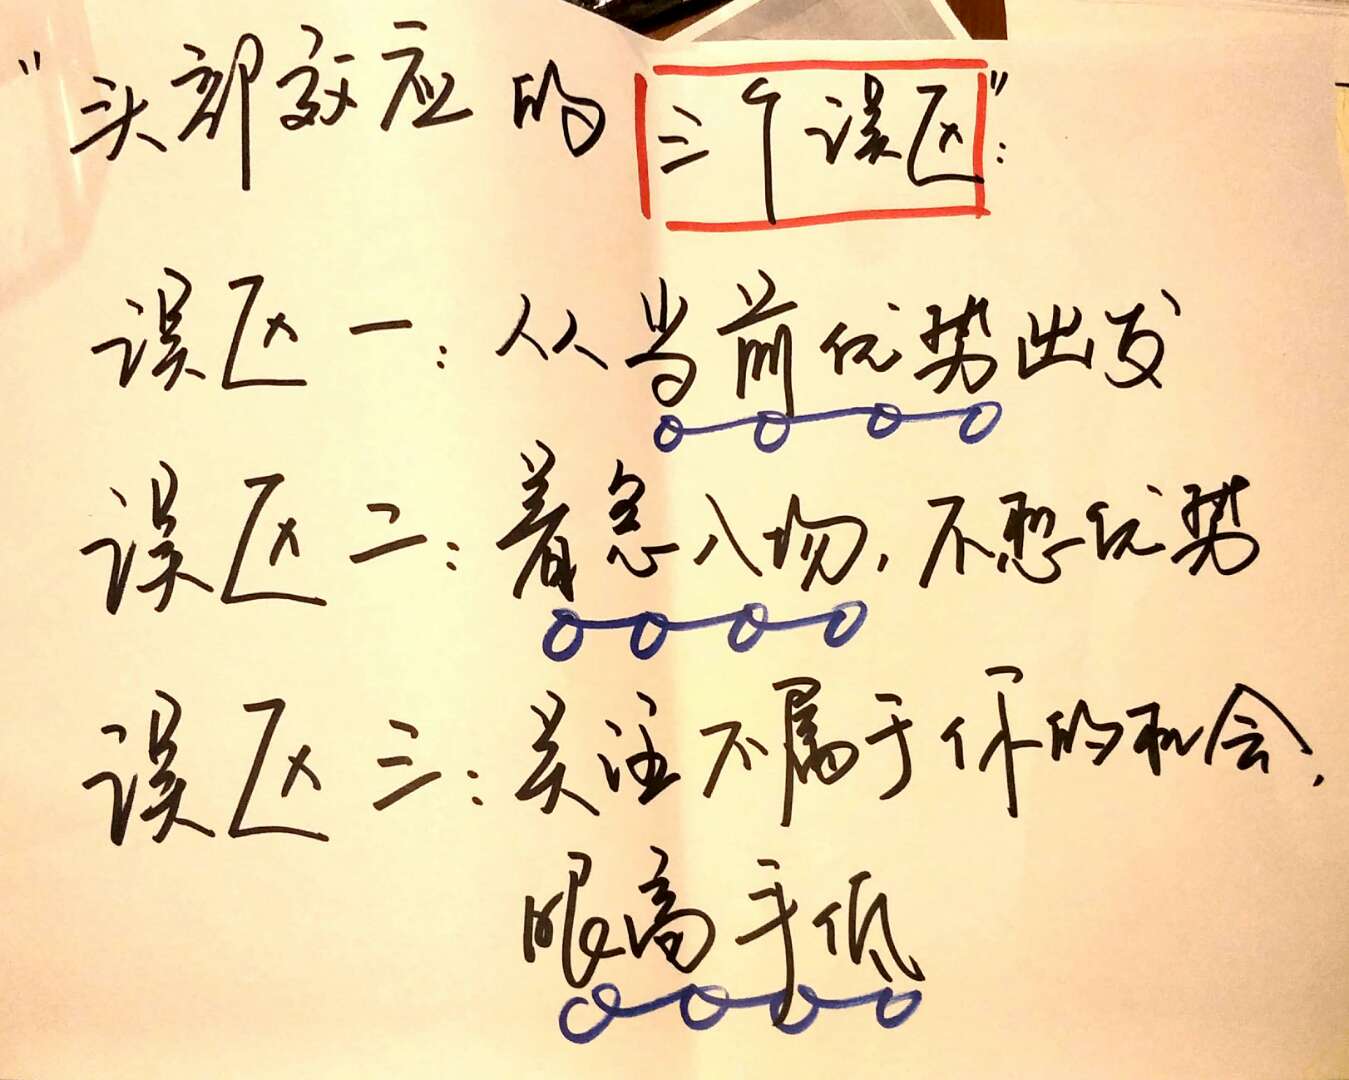 "头部效应的三个误区":
误区一:从当前优势出发
误区二:着急入场,不想优势
误区三:关注不属于你的机会,
眼高手低